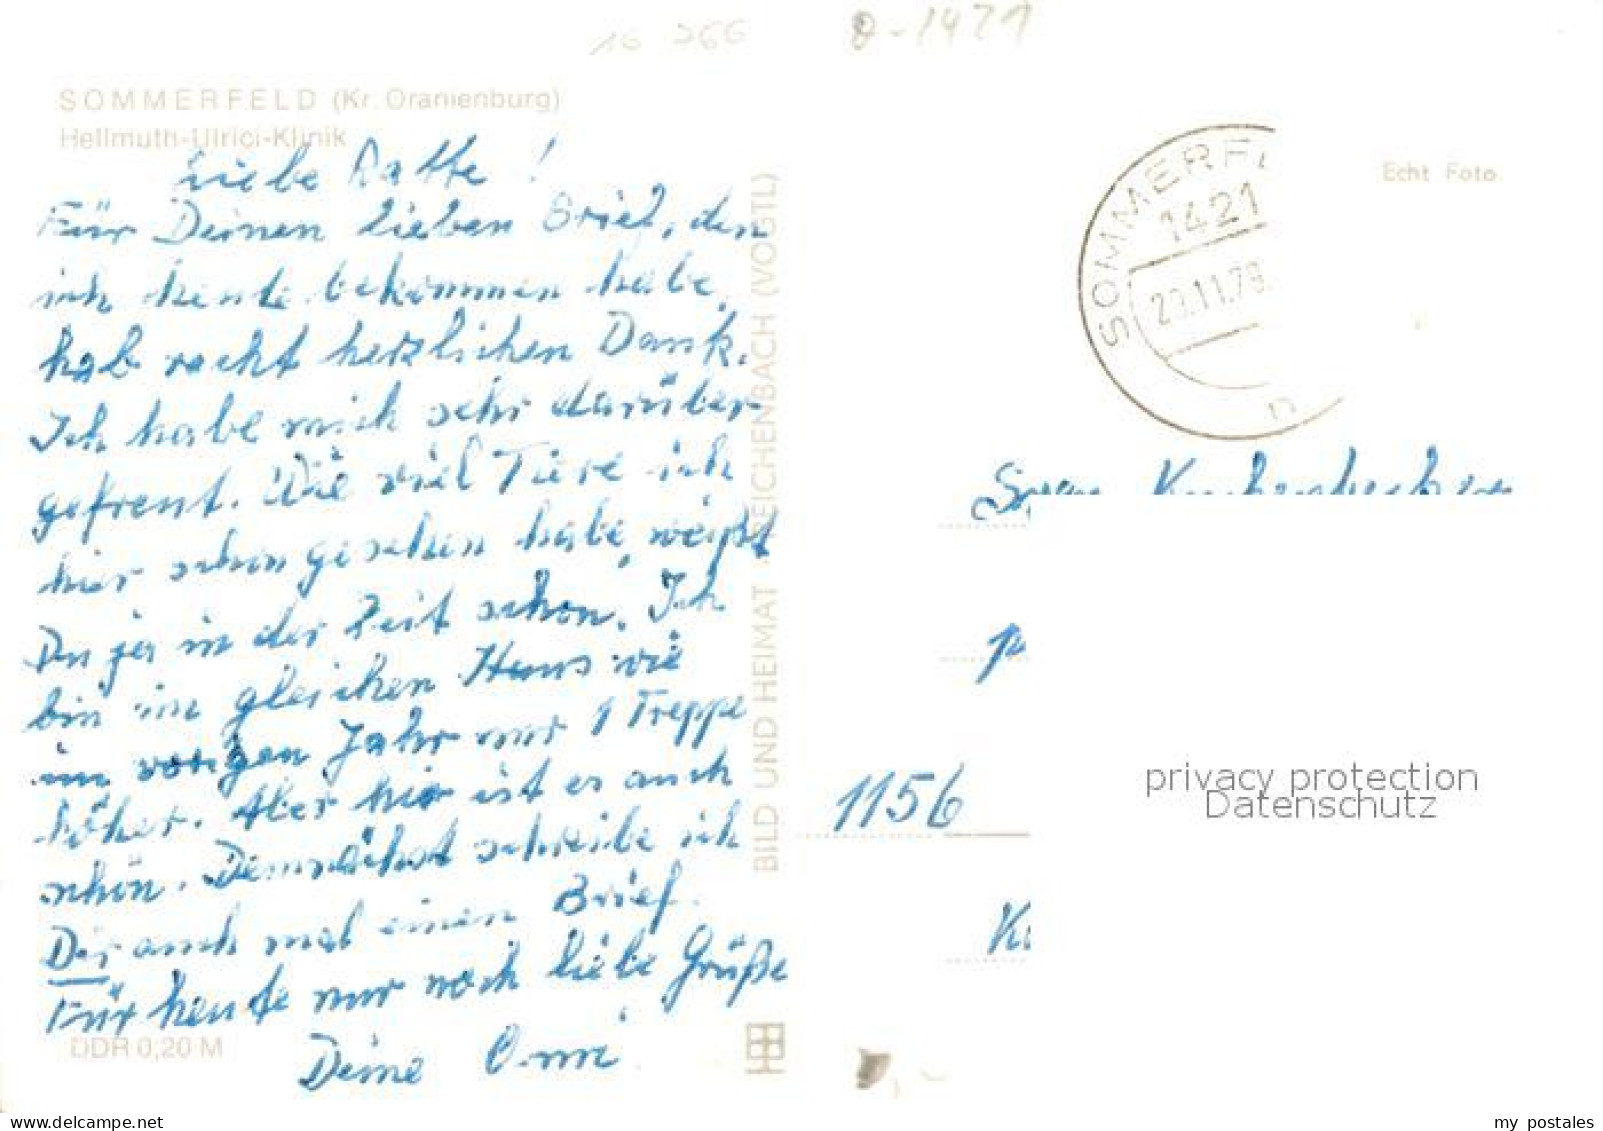 16 766
0-1421
SOMMERFELD (Kr. Oranienburg)
Hellmuth-Ulrici-Klinik
Echt Foto
SOMMERF
1421
29.11.79
Liebe Ratte!
Für Deinen lieben Brief, den
ich heute bekommen habe,
hab recht herzlichen Dank.
Ich habe mich sehr darüber
gefreut. Wie viel Tiere ich
hier schon gesehen habe, weißt
Du ja in der Zeit schon. Ich
bin im gleichen Haus wie
im vorigen Jahr nur 1 Treppe
höher. Aber hier ist es auch
schön. Demnächst schreibe ich
Dir auch mal einen Brief.
Für heute nur noch liebe Grüße
Deine Omi
DDR 0,20 M
BILD UND HEIMAT REICHENBACH (VOGTL)
1156
privacy protection
Datenschutz
my postales
www.delcampe.net